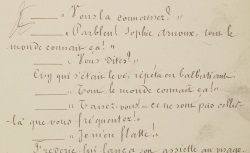 — « Vous la connaissez? »
— « Parbleu! Sophie Arnoux, tout le
monde connaît ça! »
— « Vous dites? »
Cisy qui s'était levé, répéta en balbutiant
— « Tout le monde connaît ça! »
— « Taisez-vous! — ce ne sont pas celles-
là que vous fréquentez! »
— « Je m'en flatte »
Frédéric lui lança son assiette au visage